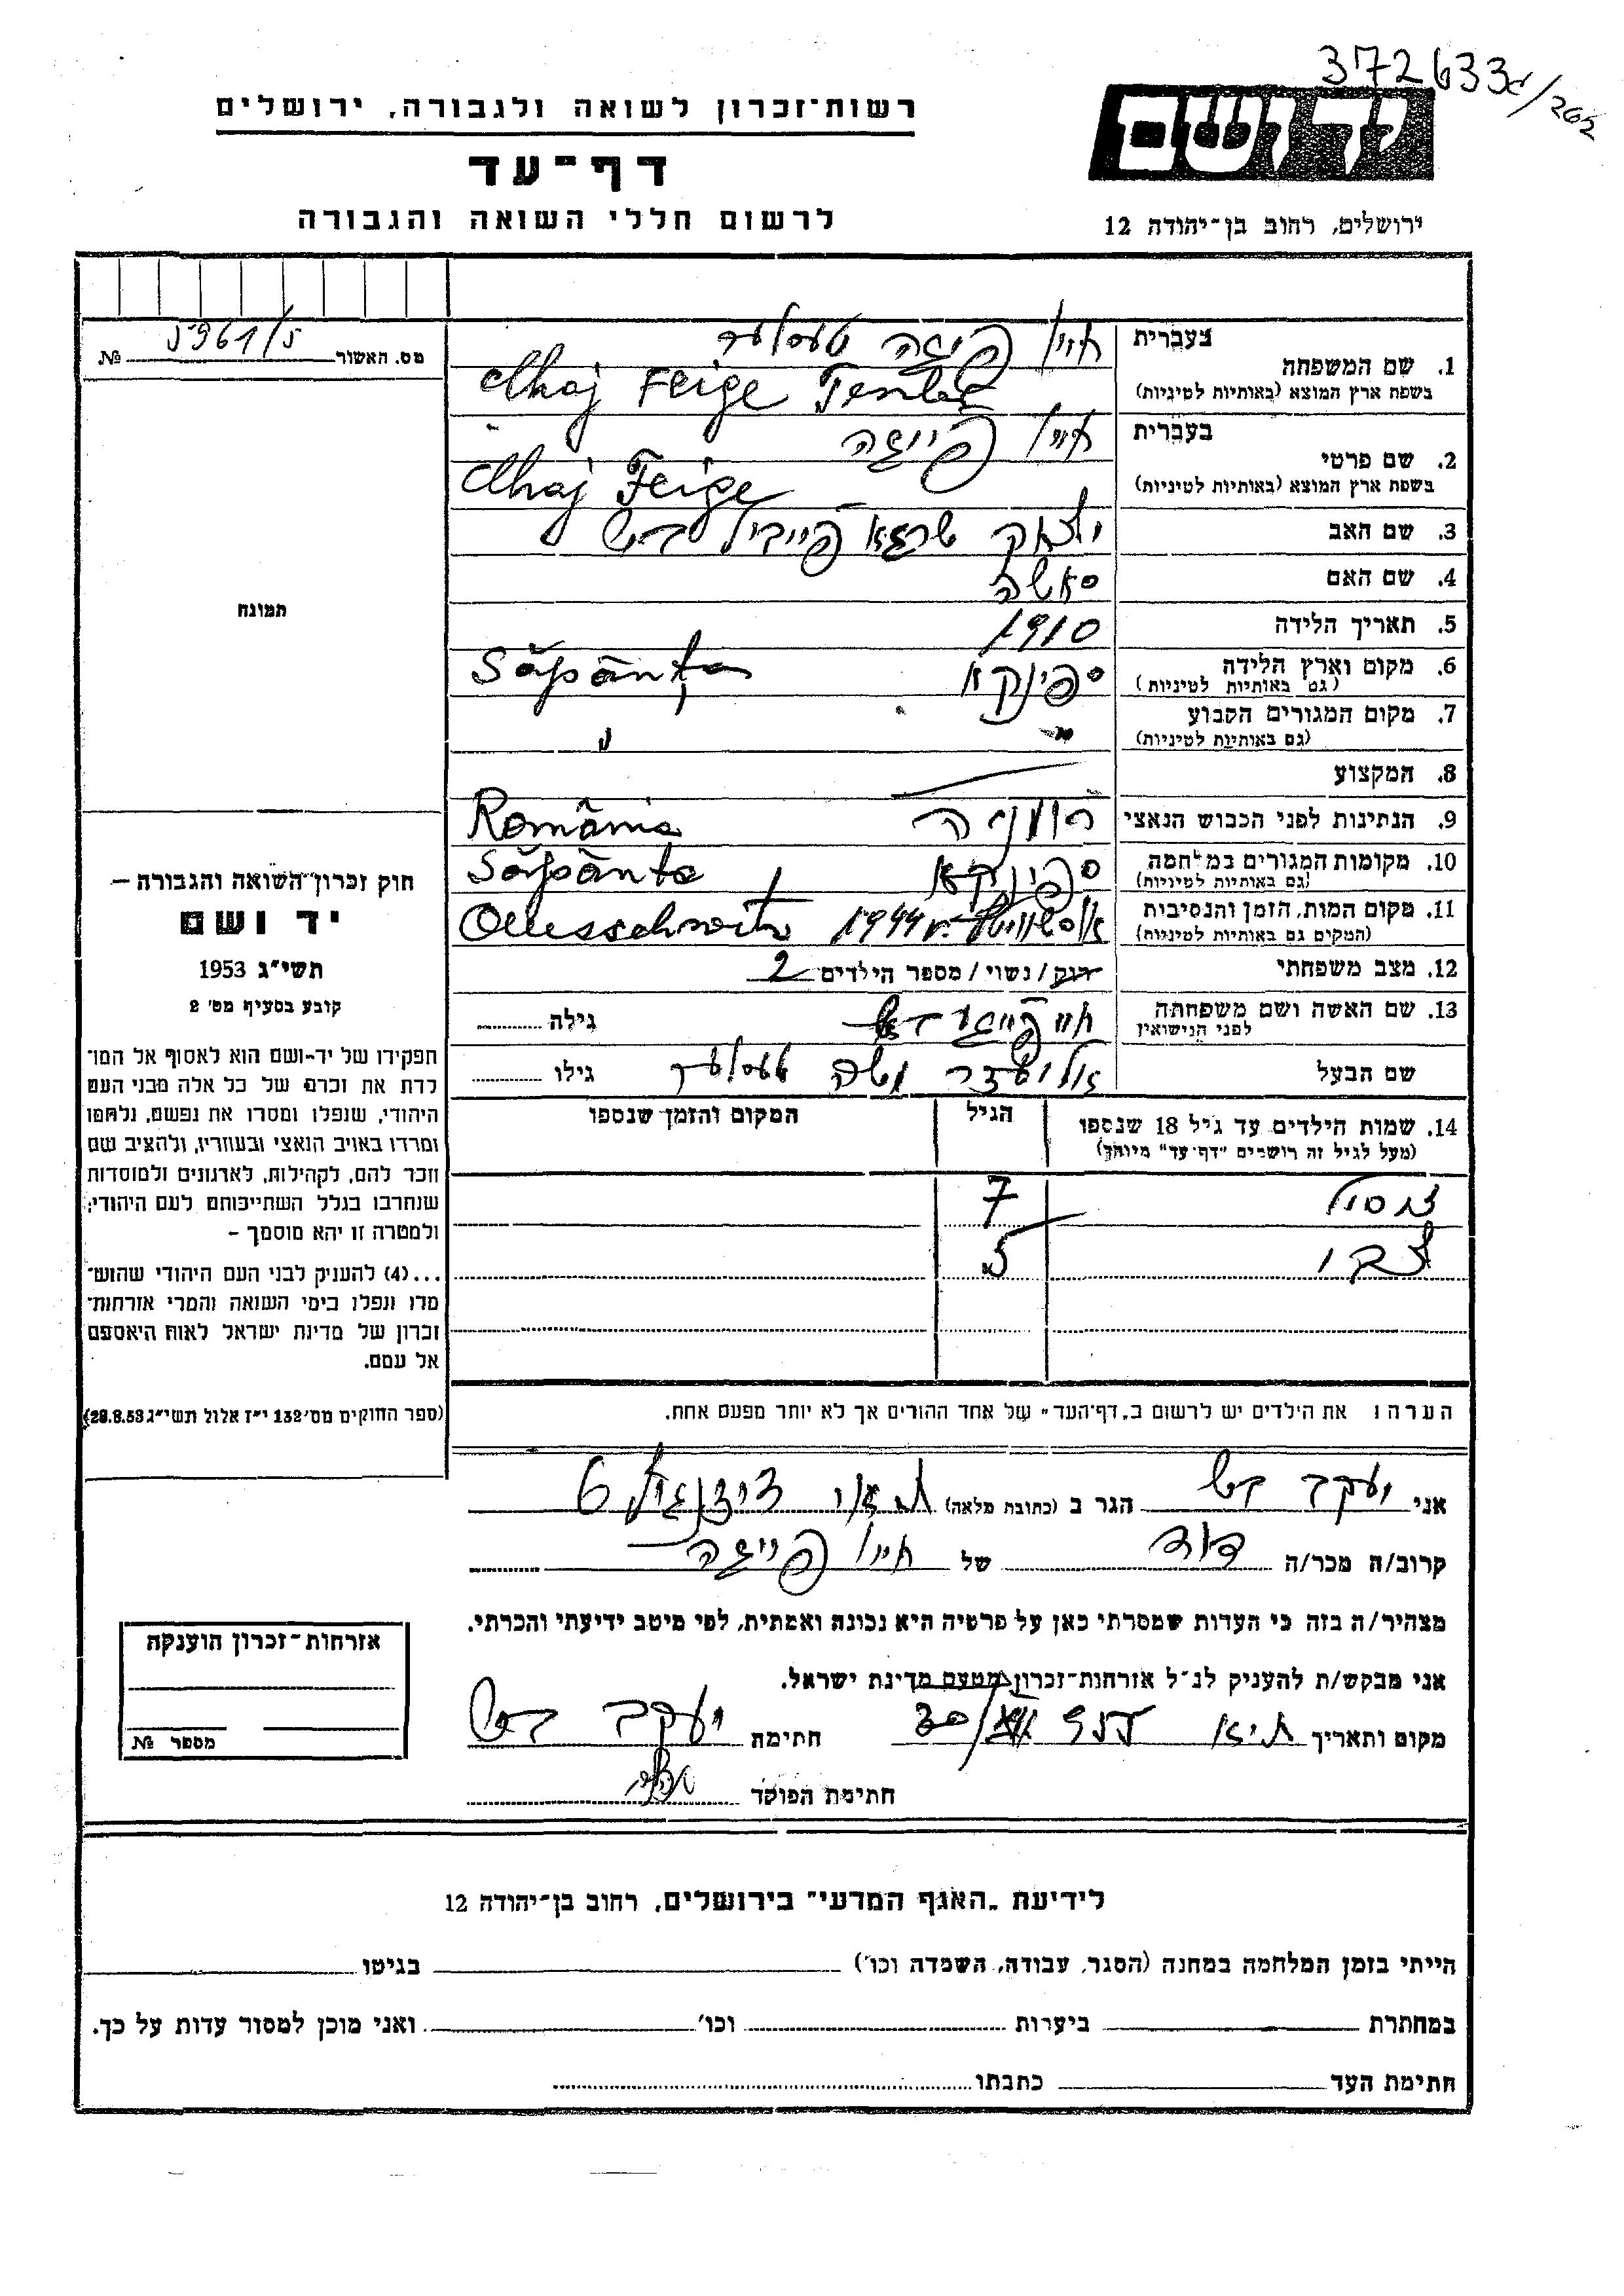 372633
/262
רשות־זכרון לשואה ולגבורה, ירושלים
דף־עד
לרשום חללי השואה והגבורה
יד ושם
ירושלים, רחוב בן־יהודה 12
מס. האשור 5961/5 №
תמונה
בעברית
1. שם המשפחה
בשפת ארץ המוצא (באותיות לטיניות)
פייגה טעסלער
Chaj Feige Tesler
בעברית
2. שם פרטי
בשפת ארץ המוצא (באותיות לטיניות)
פייגה
Chaj Feige
3. שם האב יצחק שרגא פייביל
4. שם האם סאשה
5. תאריך הלידה 1910
6. מקום וארץ הלידה ספינקא Săpânţa
(גם באותיות לטיניות)
7. מקום המגורים הקבוע
(גם באותיות לטיניות)
8. המקצוע
9. הנתינות לפני הכבוש הנאצי רומניה România
10. מקומות המגורים במלחמה ספינקא Săpânta
(גם באותיות לטיניות)
11. מקום המות, הזמן והנסיבות 1944
(המקום גם באותיות לטיניות)
12. מצב משפחתי רווק / נשוי / מספר הילדים 2
13. שם האשה ושם משפחתה גילה
לפני הנישואין
שם הבעל משה טעסלער גילו
14. שמות הילדים עד גיל 18 שנספו הגיל המקום והזמן שנספו
(מעל לגיל זה רושמים "דף־עד" מיוחד)
7
צבי 5
הערה: את הילדים יש לרשום ב„דף־העד" של אחד ההורים אך לא יותר מפעם אחת.
חוק זכרון השואה והגבורה —
יד ושם
תשי"ג 1953
קובע בסעיף מס' 2
תפקידו של יד-ושם הוא לאסוף אל המו־
לדת את זכרם של כל אלה מבני העם
היהודי, שנפלו ומסרו את נפשם, נלחמו
ומרדו באויב הנאצי ובעוזריו, ולהציב שם
וזכר להם, לקהילות, לארגונים ולמוסדות
שנחרבו בגלל השתייכותם לעם היהודי;
ולמטרה זו יהא מוסמך –
...(4) להעניק לבני העם היהודי שהוש־
מדו ונפלו בימי השואה והמרי אזרחות־
זכרון של מדינת ישראל לאות היאספם
אל עמם.
(ספר החוקים מס' 132 י"ז אלול תשי"ג 28.8.53)
אני יעקב הגר ב (כתובת מלאה) דיזנגוף
קרוב/ה מכר/ה דוד של פייגה
מצהיר/ה בזה כי העדות שמסרתי כאן על פרטיה היא נכונה ואמתית, לפי מיטב ידיעתי והכרתי.
אני מבקש/ת להעניק לנ"ל אזרחות־זכרון מטעם מדינת ישראל.
מקום ותאריך חתימה יעקב
חתימת הפוקד
אזרחות־זכרון הוענקה
מספר №
לידיעת „האגף המדעי" בירושלים, רחוב בן־יהודה 12
הייתי בזמן המלחמה במחנה (הסגר, עבודה, השמדה וכו') בגיטו
במחתרת ביערות וכו' ואני מוכן למסור עדות על כך.
חתימת העד כתבתו